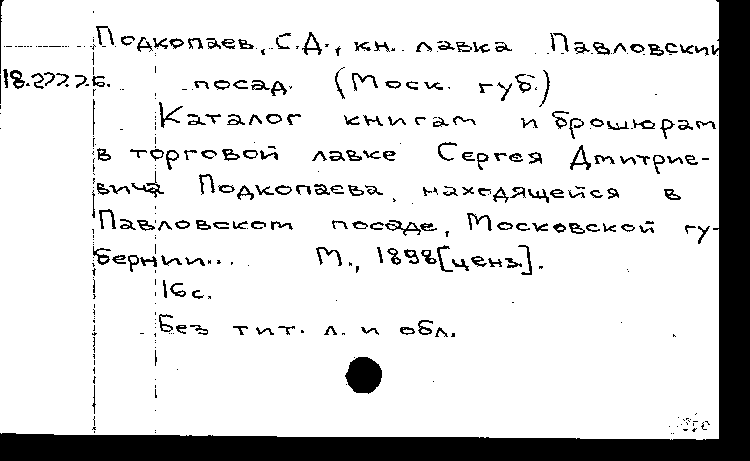 Подкопаев, С.Д., кн. лавка Павловский
18.277.7.6. посад. (Моск. губ.)
Каталог книгам и брошюрам
в торговой лавке Сергея Дмитрие-
вича Подкопаева, находящейся в
Павловском посаде, Московской гу-
бернии... М., 1898[ценз.].
16 с.
Без тит. л. и обл.